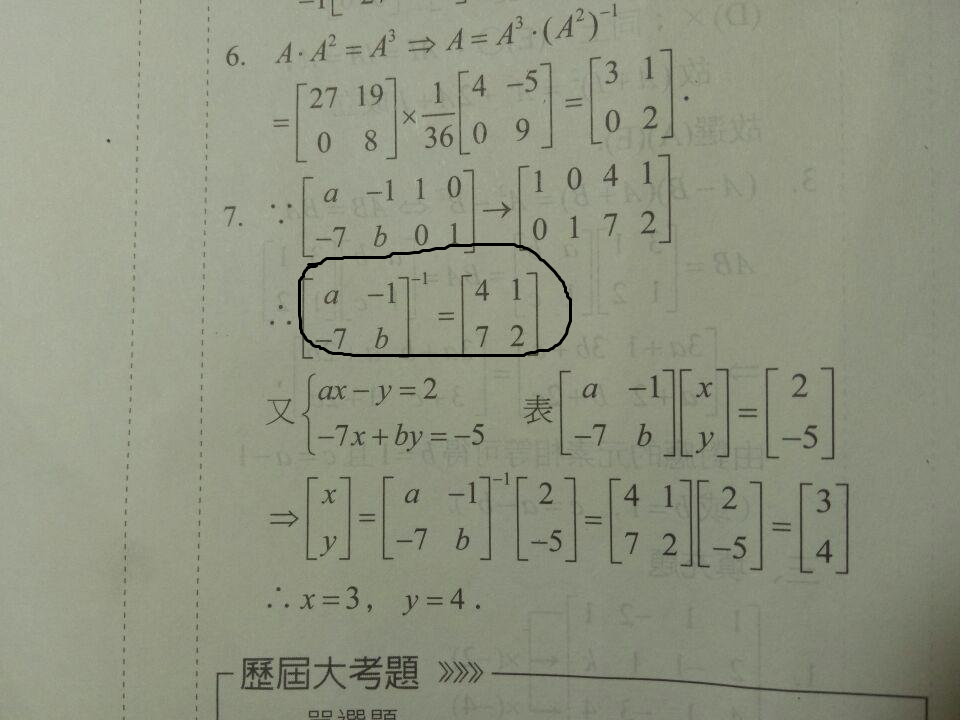 6. A · A² = A³ ⇒ A = A³ · (A²)⁻¹
= [27 19; 0 8] × 1/36 [4 −5; 0 9] = [3 1; 0 2].
7. ∵ [a −1 1 0; −7 b 0 1] → [1 0 4 1; 0 1 7 2]
∴ [a −1; −7 b]⁻¹ = [4 1; 7 2]
又 { ax − y = 2
−7x + by = −5 表 [a −1; −7 b] [x; y] = [2; −5]
⇒ [x; y] = [a −1; −7 b]⁻¹ [2; −5] = [4 1; 7 2] [2; −5] = [3; 4]
∴ x = 3, y = 4.
歷屆大考題 》》》